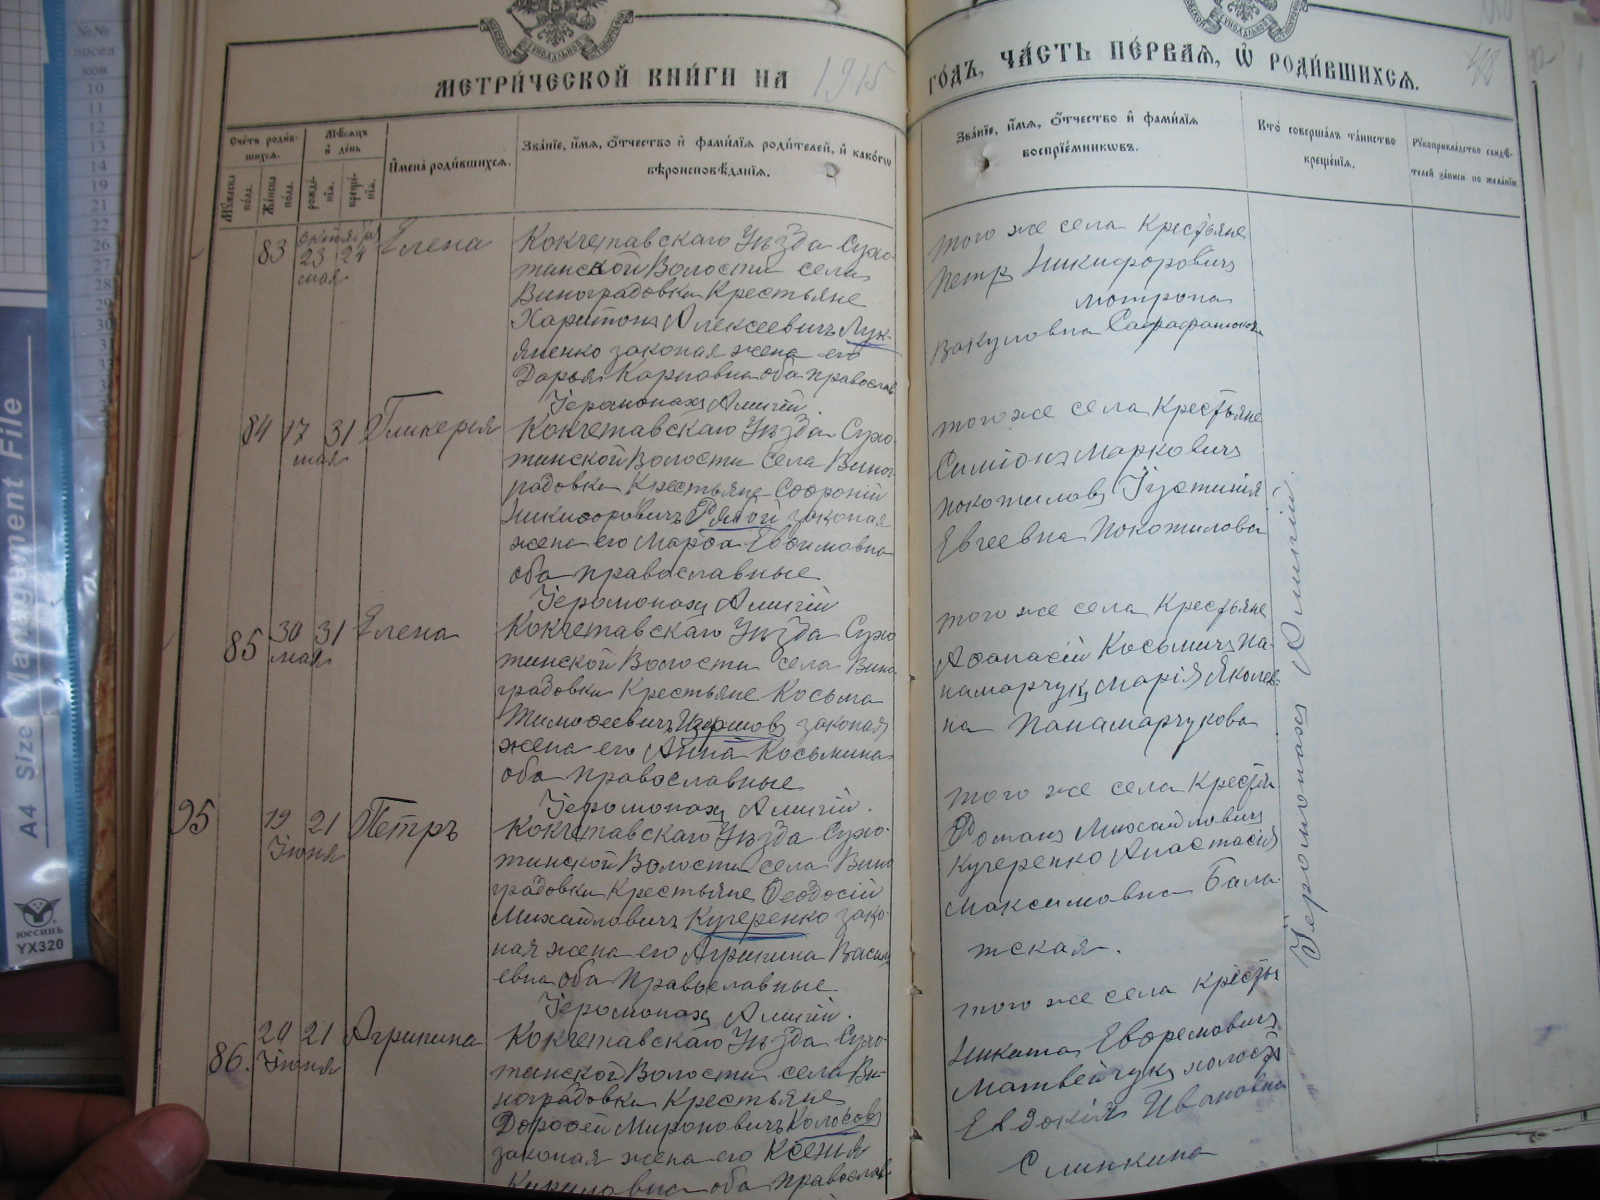 МЕТРИ́ЧЕСКОЙ КНИ́ГИ НА 1915
ГО́ДЪ, ЧА́СТЬ ПЕ́РВАѦ, Ѡ РОДИ́ВШИХСѦ.
48
Сче́тъ роди́в-
шихсѧ.
Мѣ́сѧцъ
и де́нь
Му́жеска по́ла.
Же́нска по́ла.
рожде́нїѧ.
креще́нїѧ.
Имена̀ роди́вшихсѧ.
Зва́нїе, и́мѧ, ѻ́тчество и фами́лїѧ роди́телей, и како́гѡ
вѣроисповѣ́данїѧ.
Зва́нїе, и́мѧ, ѻ́тчество и фами́лїѧ
воспрїе́мникѡвъ.
Кто̀ соверша́лъ та́инство
креще́нїѧ.
Рꙋкоприкла́дство свидѣ́-
телей за́писи по жела́нїю.
83
октября
23 24
мая
Елена
Кокчетавскаго Уѣзда Сухо-
тинской Волости села
Виноградовки Крестьяне
Харитонъ Алексеевичъ Лук-
яненко законая жена его
Дарья Карповна оба православ
Іеромонахъ
того же села Крестьяне
Петръ Никифоровичъ
Мотрона
Вакуловна
84 17 31
мая
Гликерья
Кокчетавскаго Уѣзда Сухо-
тинской Волости села Вино-
градовки Крестьяне Софроній
Никифоровичъ законая
жена его Марфа Евфимовна
оба православные
Іеромонахъ
того же села Крестьяне
Симіонъ Марковичъ
Покотиловъ Іустинія
Евгеевна Покотилова
85 30 31
мая
Елена
Кокчетавскаго Уѣзда Сухо
тинской Волости села Вино
градовки Крестьяне Косьма
Тимофеевичъ законая
жена его Анна Косьмина
оба православные
Іеромонахъ
того же села Крестьяне
Афанасій Косьмичъ Па-
намарчукъ Марія Яковлев-
на Панамарчукова
95 19 21
Іюня
Петръ
Кокчетавскаго Уѣзда Сухо-
тинской Волости села Вино
градовки Крестьяне Феодосій
Михайловичъ Кучеренко зако-
ная жена его Агрипина Васил
евна оба православные
Іеромонахъ
того же села Крестья
Романъ Михайловичъ
Кучеренко Анастасія
Максимовна Бала-
тская.
Іеромонахъ
86. 20 21
Іюня
Агрипина
Кокчетавскаго Уѣзда Сухо-
тинской Волости села Ви-
ноградовки Крестьяне
Дорофей Мироновичъ Колосовъ
законая жена его Ксенія
Кириловна оба православ
того же села Крестья
Никита Евфремовичъ
Матвейчукъ
Евдокія Ивановна
Слинкина
№№
посел
ков
10
11
12
13
14
19
21
22
26
27
28
29
30
A4 Size Management File
ЮССИНЬ
YX320